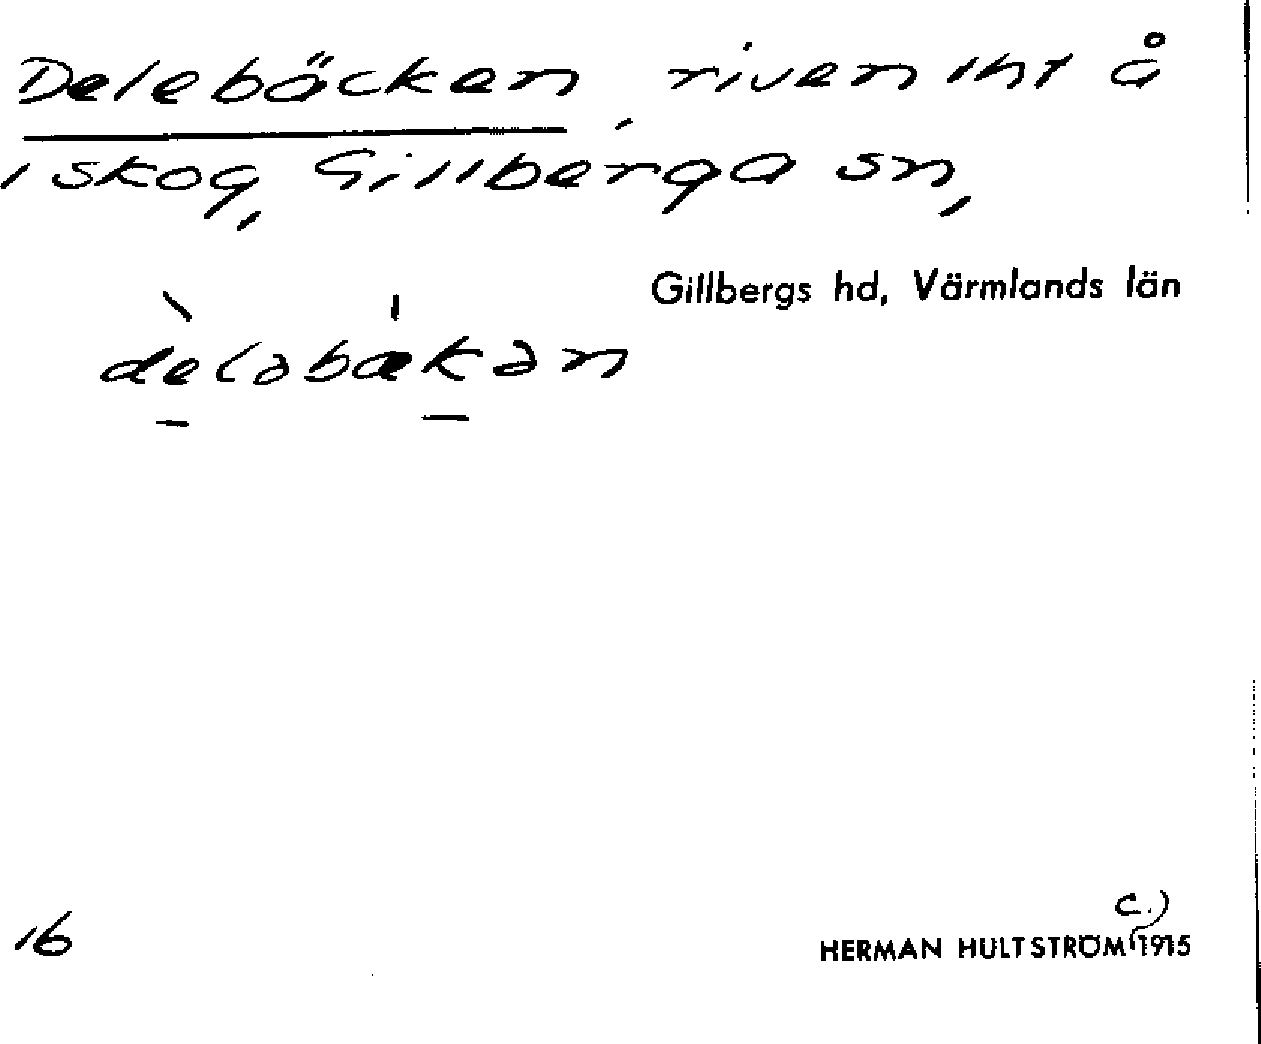 Delebäcken, riven lht å
i skog, Gillberga sn,
Gillbergs hd, Värmlands län
dèləbækən
16
c.)
HERMAN HULTSTRÖM (1915